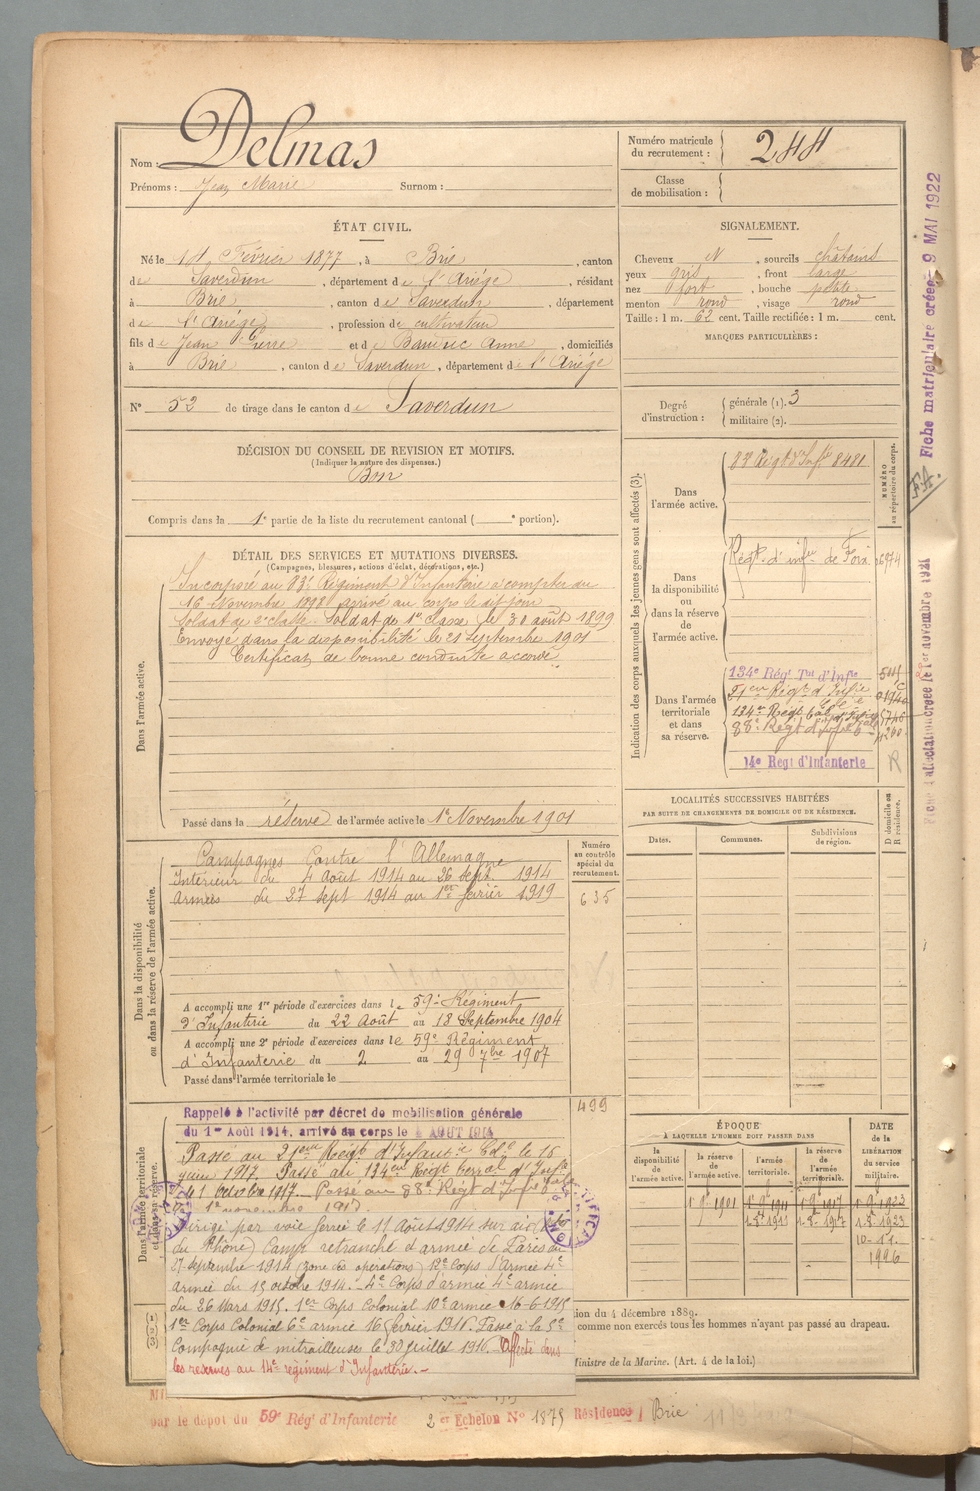 Nom : Delmas
Prénoms : Jean Marie Surnom :
Numéro matricule du recrutement : 244
Classe de mobilisation :
ÉTAT CIVIL.
Né le 14 Février 1877, à Brie, canton
de Saverdun, département de l'Ariège, résidant
à Brie, canton de Saverdun, département
de l'Ariège, profession de cultivateur
fils de Jean Pierre et de Anne, domiciliés
à Brie, canton de Saverdun, département de l'Ariège
N° 52 de tirage dans le canton de Saverdun
SIGNALEMENT.
Cheveux N, sourcils châtains
yeux gris, front large
nez fort, bouche petite
menton rond, visage rond
Taille : 1 m. 62 cent. Taille rectifiée : 1 m. cent.
MARQUES PARTICULIÈRES :
Degré d'instruction : générale (1). 3
militaire (2).
DÉCISION DU CONSEIL DE REVISION ET MOTIFS.
(Indiquer la nature des dispenses.)
Bon
Compris dans la 1e partie de la liste du recrutement cantonal ( e portion).
DÉTAIL DES SERVICES ET MUTATIONS DIVERSES.
(Campagnes, blessures, actions d'éclat, décorations, etc.)
Dans l'armée active.
Incorporé au 83e Régiment d'Infanterie à compter du
16 Novembre 1898 arrivé au corps le dit jour
Soldat de 2e classe. Soldat de 1re classe le 30 août 1899
Envoyé dans la disponibilité le 21 Septembre 1901
Certificat de bonne conduite accordé
Passé dans la réserve de l'armée active le 1er Novembre 1901
Indication des corps auxquels les jeunes gens sont affectés (3).
NUMÉRO au répertoire du corps.
Dans l'armée active.
83e Régt d'Infie 8481
Dans la disponibilité ou dans la réserve de l'armée active.
Régt d'infie de Foix 6974
Dans l'armée territoriale et dans sa réserve.
134e Régt Tal d'Infie
Régt d'Infie
134e Régt
88e Régt d'Infie
14e Régt d'Infanterie
R
Fiche matriculaire créée 9 MAI 1922
F.A.
Fiche d'affectation créée le 1er novembre 1921
Dans la disponibilité ou dans la réserve de l'armée active.
Numéro au contrôle spécial du recrutement.
Campagnes Contre l'Allemagne
Intérieur du 4 Août 1914 au 26 sept. 1914
Armées du 27 sept 1914 au 1er février 1919
635
A accompli une 1re période d'exercices dans le 59e Régiment
d'Infanterie du 22 Août au 18 Septembre 1904
A accompli une 2e période d'exercices dans le 59e Régiment
d'Infanterie du 2 au 29 7bre 1907
Passé dans l'armée territoriale le
LOCALITÉS SUCCESSIVES HABITÉES
PAR SUITE DE CHANGEMENTS DE DOMICILE OU DE RÉSIDENCE.
Dates. Communes. Subdivisions de région. D domicile ou R résidence.
Dans l'armée territoriale et dans sa réserve.
499
Rappelé à l'activité par décret de mobilisation générale
du 1er Août 1914, arrivé au corps le 4 AOUT 1914
Passé au 21eme Régt d'Infantie Cole le 16
juin 1917. Passé au 134eme Régt terral d'Infie
le 1 octobre 1917. Passé au 88e Régt d'Infie
1er novembre 1917.
Dirigé par voie ferrée le 11 Août 1914 sur
du Rhône) Camp retranché d'armée de Paris du
27 septembre 1914 (zone des opérations) Corps d'Armée 4e
Armée du 15 octobre 1914. - 4e Corps d'armée 4e armée
du 26 Mars 1915. 1er Corps Colonial 10e armée 16-6-1915
1er Corps Colonial 6e armée 16 février 1916. Passé à la
Compagnie de mitrailleuses le 30 juillet 1916. Affecté dans
les réserves au 14e régiment d'Infanterie.-
ÉPOQUE À LAQUELLE L'HOMME DOIT PASSER DANS
DATE de la LIBÉRATION du service militaire.
la disponibilité de l'armée active. la réserve de l'armée active. l'armée territoriale. la réserve de l'armée territoriale.
1-9-1901 1-9-1911 1-9-1917 1-9-1923
1-8-1911 1-8-1917 1-8-1923
10-11.
1926
(1)
(2)
(3)
ion du 4 décembre 1889.
comme non exercés tous les hommes n'ayant pas passé au drapeau.
Ministre de la Marine. (Art. 4 de la loi.)
par le dépôt du 59e Régt d'Infanterie 2er Echelon N° 1875 Résidence Brie